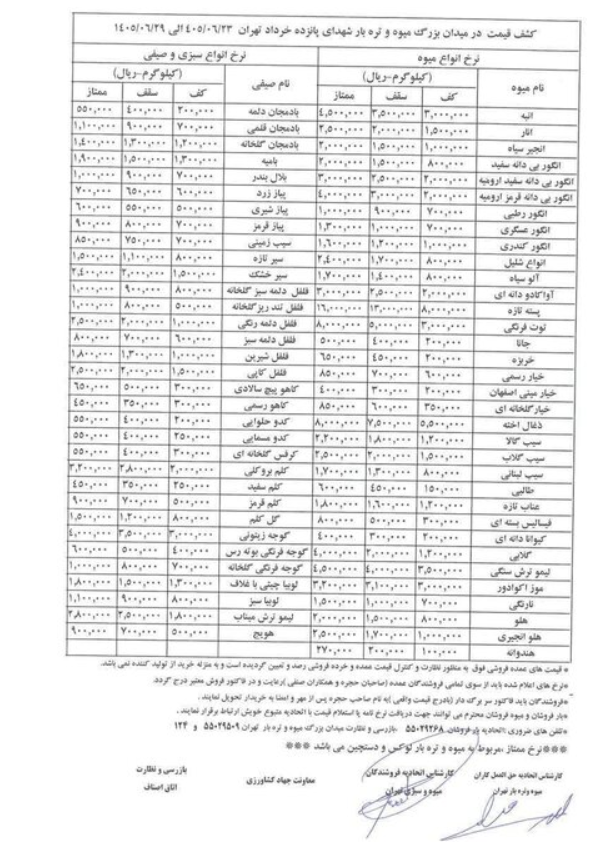 کشف قیمت در میدان بزرگ میوه و تره بار شهدای پانزده خرداد تهران ۴۰۵/۰۶/۲۳ الی ۱۴۰۵/۰۶/۲۹
نرخ انواع میوه نرخ انواع سبزی و صیفی
نام میوه (کیلوگرم-ریال) نام صیفی (کیلوگرم-ریال)
کف سقف ممتاز کف سقف ممتاز
انبه ۳,۰۰۰,۰۰۰ ۳,۵۰۰,۰۰۰ ۴,۵۰۰,۰۰۰ بادمجان دلمه ۲۰۰,۰۰۰ ۴۰۰,۰۰۰ ۵۵۰,۰۰۰
انار ۱,۵۰۰,۰۰۰ ۲,۰۰۰,۰۰۰ بادمجان قلمی ۷۰۰,۰۰۰ ۹۰۰,۰۰۰ ۱,۱۰۰,۰۰۰
انجیر سیاه ۱,۰۰۰,۰۰۰ ۱,۵۰۰,۰۰۰ ۲,۰۰۰,۰۰۰ بادمجان گلخانه ۱,۲۰۰,۰۰۰ ۱,۳۰۰,۰۰۰ ۱,۴۰۰,۰۰۰
انگور بی دانه سفید ۸۰۰,۰۰۰ ۱,۵۰۰,۰۰۰ ۲,۰۰۰,۰۰۰ بامیه ۱,۳۰۰,۰۰۰ ۱,۵۰۰,۰۰۰ ۱,۹۰۰,۰۰۰
انگور بی دانه سفید ارومیه ۲,۰۰۰,۰۰۰ ۲,۵۰۰,۰۰۰ ۳,۰۰۰,۰۰۰ بلال بندر ۷۰۰,۰۰۰ ۹۰۰,۰۰۰ ۱,۰۰۰,۰۰۰
انگور بی دانه قرمز ارومیه ۲,۰۰۰,۰۰۰ ۳,۰۰۰,۰۰۰ ۴,۰۰۰,۰۰۰ پیاز زرد ۶۰۰,۰۰۰ ۶۵۰,۰۰۰ ۷۰۰,۰۰۰
انگور رطبی ۷۰۰,۰۰۰ ۹۰۰,۰۰۰ ۱,۰۰۰,۰۰۰ پیاز شیری ۵۰۰,۰۰۰ ۵۵۰,۰۰۰ ۶۰۰,۰۰۰
انگور عسگری ۷۰۰,۰۰۰ ۱,۰۰۰,۰۰۰ ۱,۳۰۰,۰۰۰ پیاز قرمز ۷۰۰,۰۰۰ ۸۰۰,۰۰۰ ۹۰۰,۰۰۰
انگور کندری ۱,۰۰۰,۰۰۰ ۱,۳۰۰,۰۰۰ ۱,۶۰۰,۰۰۰ سیب زمینی ۷۰۰,۰۰۰ ۷۵۰,۰۰۰ ۸۵۰,۰۰۰
انواع شلیل ۸۰۰,۰۰۰ ۱,۷۰۰,۰۰۰ ۲,۴۰۰,۰۰۰ سیر تازه ۸۰۰,۰۰۰ ۱,۱۰۰,۰۰۰ ۱,۵۰۰,۰۰۰
آلو سیاه ۸۰۰,۰۰۰ ۱,۴۰۰,۰۰۰ ۱,۷۰۰,۰۰۰ سیر خشک ۱,۵۰۰,۰۰۰ ۲,۰۰۰,۰۰۰ ۲,۴۰۰,۰۰۰
آواکادو دانه ای ۲,۰۰۰,۰۰۰ ۲,۵۰۰,۰۰۰ ۳,۰۰۰,۰۰۰ فلفل دلمه سبز گلخانه ۸۰۰,۰۰۰ ۹۰۰,۰۰۰ ۱,۰۰۰,۰۰۰
پسته تازه ۸,۰۰۰,۰۰۰ ۱۳,۰۰۰,۰۰۰ ۱۶,۰۰۰,۰۰۰ فلفل تند ریز گلخانه ۵۰۰,۰۰۰ ۸۰۰,۰۰۰ ۱,۰۰۰,۰۰۰
توت فرنگی ۳,۰۰۰,۰۰۰ ۵,۰۰۰,۰۰۰ ۸,۰۰۰,۰۰۰ فلفل دلمه رنگی ۱,۰۰۰,۰۰۰ ۲,۰۰۰,۰۰۰ ۲,۵۰۰,۰۰۰
جانا ۲۰۰,۰۰۰ ۴۰۰,۰۰۰ ۵۰۰,۰۰۰ فلفل دلمه سبز ۶۰۰,۰۰۰ ۷۰۰,۰۰۰ ۸۰۰,۰۰۰
خربزه ۲۰۰,۰۰۰ ۴۵۰,۰۰۰ ۶۵۰,۰۰۰ فلفل شیرین ۱,۰۰۰,۰۰۰ ۱,۳۰۰,۰۰۰ ۱,۸۰۰,۰۰۰
خیار رسمی ۶۰۰,۰۰۰ ۷۰۰,۰۰۰ ۸۵۰,۰۰۰ فلفل کاپی ۱,۵۰۰,۰۰۰ ۲,۰۰۰,۰۰۰ ۲,۵۰۰,۰۰۰
خیار مینی اصفهان ۲۰۰,۰۰۰ ۳۰۰,۰۰۰ ۴۰۰,۰۰۰ کاهو پیچ سالادی ۳۰۰,۰۰۰ ۵۰۰,۰۰۰ ۶۵۰,۰۰۰
خیار گلخانه ای ۳۵۰,۰۰۰ ۶۰۰,۰۰۰ ۸۵۰,۰۰۰ کاهو رسمی ۳۰۰,۰۰۰ ۳۵۰,۰۰۰ ۴۵۰,۰۰۰
ذغال اخته ۵,۵۰۰,۰۰۰ ۷,۵۰۰,۰۰۰ ۸,۰۰۰,۰۰۰ کدو حلوایی ۲۰۰,۰۰۰ ۴۰۰,۰۰۰ ۵۵۰,۰۰۰
سیب گالا ۱,۲۰۰,۰۰۰ ۱,۸۰۰,۰۰۰ ۲,۲۰۰,۰۰۰ کدو مسمایی ۲۵۰,۰۰۰ ۴۰۰,۰۰۰ ۵۵۰,۰۰۰
سیب گلاب ۱,۵۰۰,۰۰۰ ۲,۰۰۰,۰۰۰ ۲,۵۰۰,۰۰۰ کرفس گلخانه ای ۳۰۰,۰۰۰ ۴۰۰,۰۰۰ ۵۵۰,۰۰۰
سیب لبنانی ۸۰۰,۰۰۰ ۱,۳۰۰,۰۰۰ ۱,۷۰۰,۰۰۰ کلم بروکلی ۲,۰۰۰,۰۰۰ ۲,۸۰۰,۰۰۰ ۳,۲۰۰,۰۰۰
طالبی ۱۵۰,۰۰۰ ۴۵۰,۰۰۰ ۶۰۰,۰۰۰ کلم سفید ۲۵۰,۰۰۰ ۳۵۰,۰۰۰ ۴۵۰,۰۰۰
عناب تازه ۱,۲۰۰,۰۰۰ ۱,۶۰۰,۰۰۰ ۱,۸۰۰,۰۰۰ کلم قرمز ۵۰۰,۰۰۰ ۷۰۰,۰۰۰ ۹۰۰,۰۰۰
فیسالیس بسته ای ۳۰۰,۰۰۰ ۵۰۰,۰۰۰ ۸۰۰,۰۰۰ گل کلم ۸۰۰,۰۰۰ ۱,۲۰۰,۰۰۰ ۱,۵۰۰,۰۰۰
کیوانا دانه ای ۲۰۰,۰۰۰ ۳۰۰,۰۰۰ ۴۰۰,۰۰۰ گوجه زیتونی ۳,۰۰۰,۰۰۰ ۳,۵۰۰,۰۰۰ ۴,۰۰۰,۰۰۰
گلابی ۱,۲۰۰,۰۰۰ ۲,۰۰۰,۰۰۰ ۴,۰۰۰,۰۰۰ گوجه فرنگی بوته رس ۴۰۰,۰۰۰ ۵۰۰,۰۰۰ ۶۰۰,۰۰۰
لیمو ترش سنگی ۳,۵۰۰,۰۰۰ ۴,۰۰۰,۰۰۰ ۴,۵۰۰,۰۰۰ گوجه فرنگی گلخانه ۷۰۰,۰۰۰ ۸۰۰,۰۰۰ ۱,۰۰۰,۰۰۰
موز اکوادور ۳,۰۰۰,۰۰۰ ۳,۱۰۰,۰۰۰ ۳,۲۰۰,۰۰۰ لوبیا چیتی با غلاف ۱,۳۰۰,۰۰۰ ۱,۵۰۰,۰۰۰ ۱,۸۰۰,۰۰۰
نارنگی ۷۰۰,۰۰۰ ۱,۰۰۰,۰۰۰ ۱,۵۰۰,۰۰۰ لوبیا سبز ۸۰۰,۰۰۰ ۹۰۰,۰۰۰ ۱,۱۰۰,۰۰۰
هلو ۸۰۰,۰۰۰ ۱,۵۰۰,۰۰۰ ۲,۰۰۰,۰۰۰ لیمو ترش میناب ۱,۸۰۰,۰۰۰ ۲,۵۰۰,۰۰۰ ۲,۸۰۰,۰۰۰
هلو انجیری ۱,۰۰۰,۰۰۰ ۱,۷۰۰,۰۰۰ ۲,۵۰۰,۰۰۰ هویج ۵۰۰,۰۰۰ ۷۰۰,۰۰۰ ۹۰۰,۰۰۰
هندوانه ۱۰۰,۰۰۰ ۲۰۰,۰۰۰ ۲۷۰,۰۰۰
*قیمت های عمده فروشی فوق به منظور نظارت و کنترل قیمت عمده و خرده فروشی رصد و تعیین گردیده است و به منزله خرید از تولید کننده نمی باشد.
*نرخ های اعلام شده باید از سوی تمامی فروشندگان عمده (صاحبان حجره و همکاران صنفی) رعایت و در فاکتور فروش معتبر درج گردد.
*فروشندگان باید فاکتور سر برگ دار (بادرج قیمت واقعی) به نام صاحب حجره پس از مهر و امضا به خریدار تحویل نمایند.
*بار فروشان و میوه فروشان محترم می توانند جهت دریافت نرخ نامه یا استعلام قیمت با اتحادیه متبوع خویش ارتباط برقرار نمایند.
*تلفن های ضروری : اتحادیه بار فروشان ۵۵۰۲۹۲۶۸ -بازرسی و نظارت میدان بزرگ میوه و تره بار تهران ۵۵۰۲۹۵۰۹ و ۱۲۴
***نرخ ممتاز ,مربوط به میوه و تره بار لوکس و دستچین می باشد ***
کارشناس اتحادیه حق العمل کاران کارشناس اتحادیه فروشندگان معاونت جهاد کشاورزی بازرسی و نظارت
میوه وتره بار تهران میوه و سبزی تهران اتاق اصناف